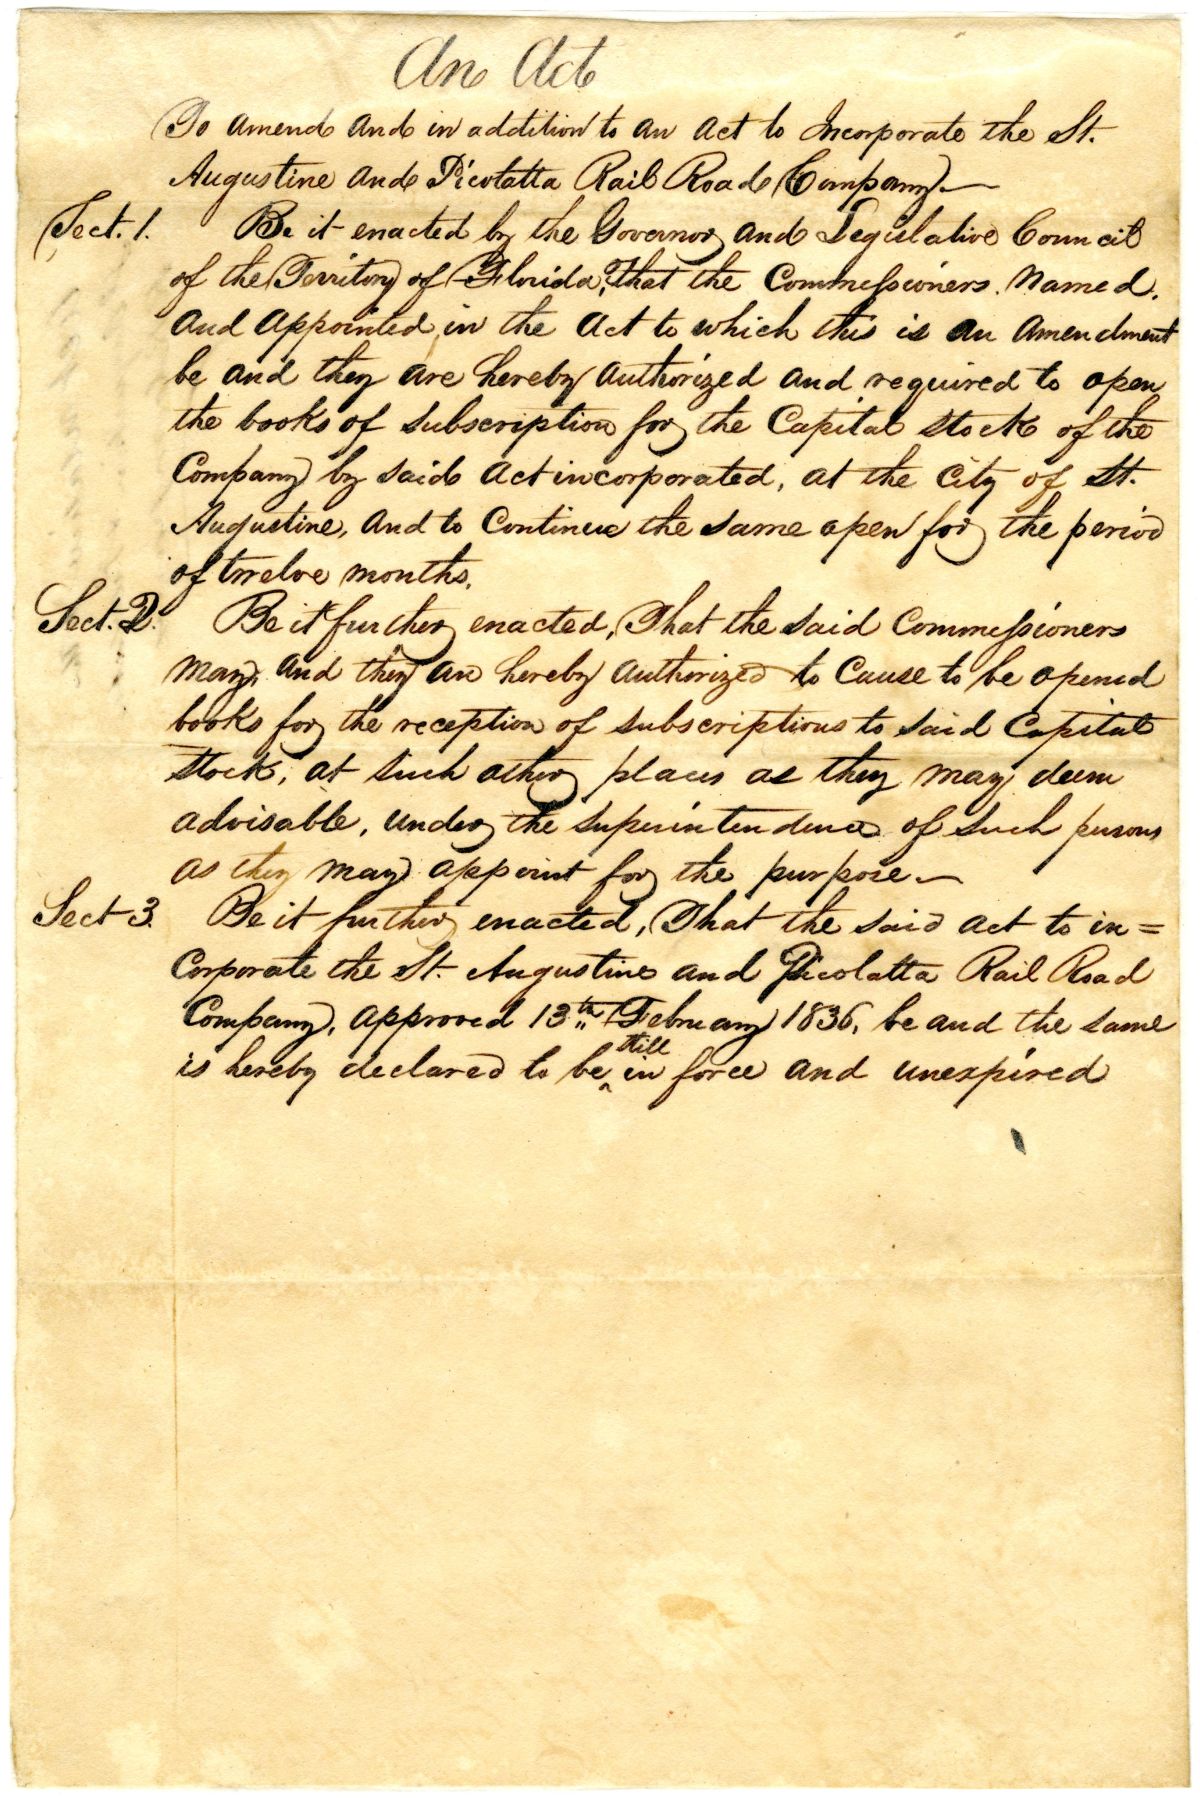 An Act
To amend and in addition to an act to Incorporate the St.
Augustine and Picolatta Rail Road Company.—
Sect. 1. Be it enacted by the Governor and Legislative Council
of the Territory of Florida, That the Commissioners named.
and appointed in the act to which this is an amendment
be and they are hereby authorized and required to open
the books of subscription for the Capital stock of the
Company by said act incorporated, at the City of St.
Augustine, and to Continue the same open for the period
of twelve months.
Sect. 2. Be it further enacted, That the said Commissioners
may, and they are hereby authorized to Cause to be opened
books for the reception of subscriptions to said Capital
stock, at such other places as they may deem
advisable, under the superintendence of such persons
as they may appoint for the purpose.—
Sect 3. Be it further enacted, That the said act to in=
corporate the St. Augustine and Picolatta Rail Road
Company, approved 13th February 1836, be and the same
is hereby declared to be ‸ still in force and unexpired